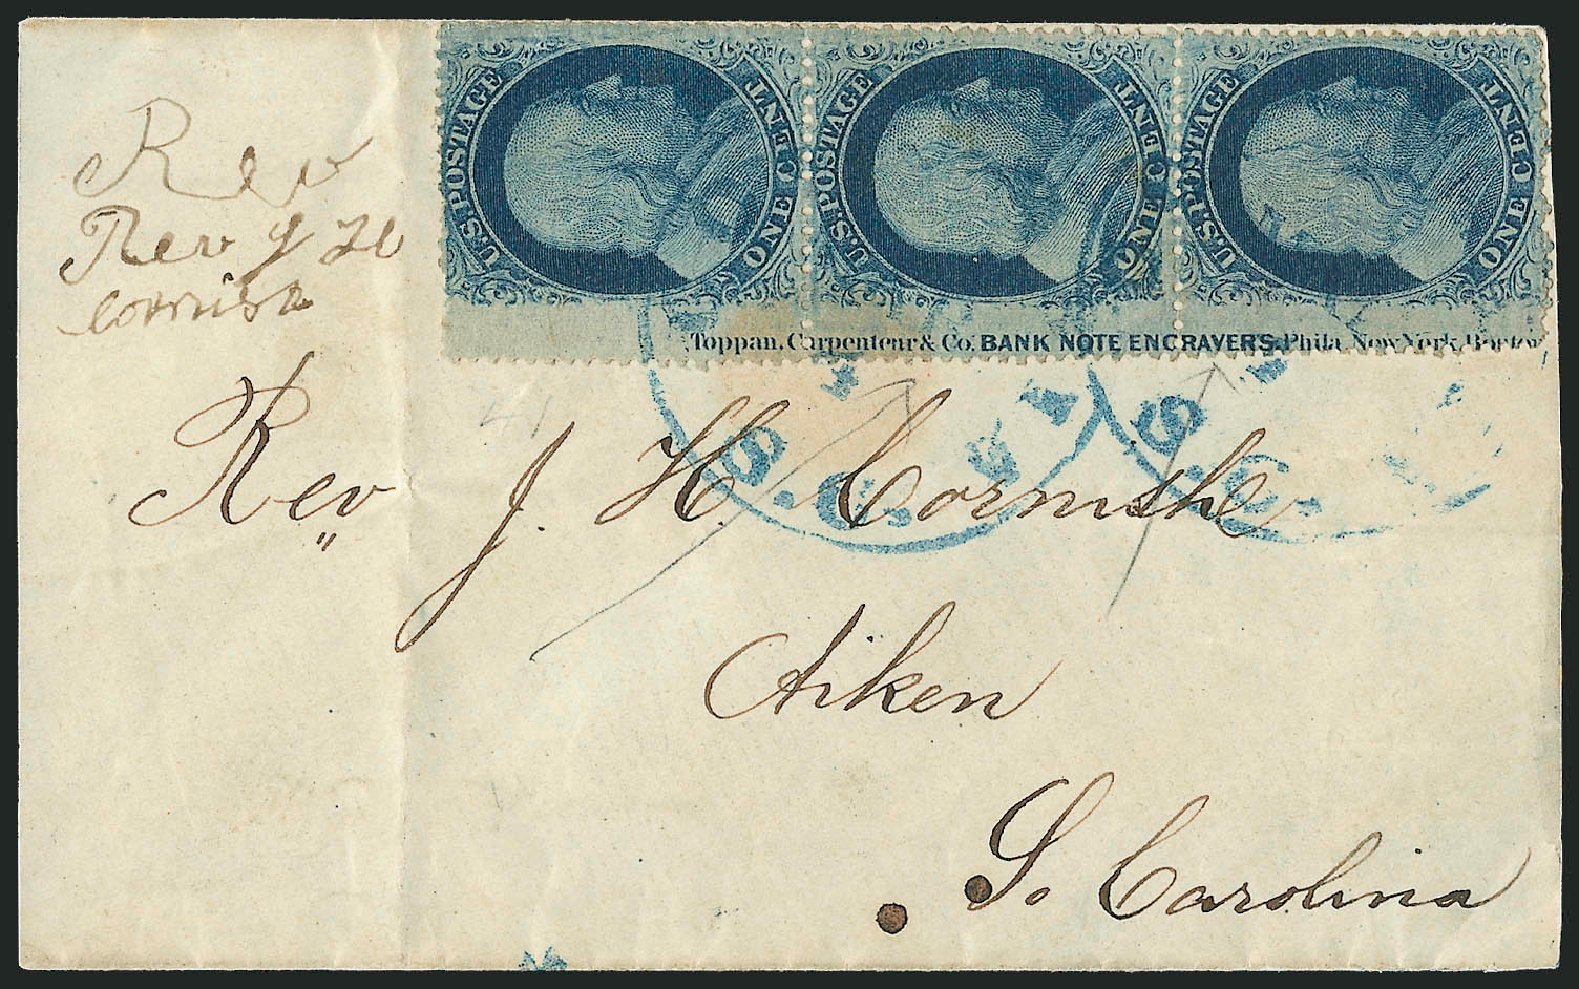 U.S. POSTAGE ONE CENT
U.S. POSTAGE ONE CENT
U.S. POSTAGE ONE CENT
Toppan, Carpenter & Co. BANK NOTE ENGRAVERS, Phila. New York, Boston
Rev
Rev J H
Cornish
Rev J. H Cornish
Aiken
So Carolina
S.C.
S.C.